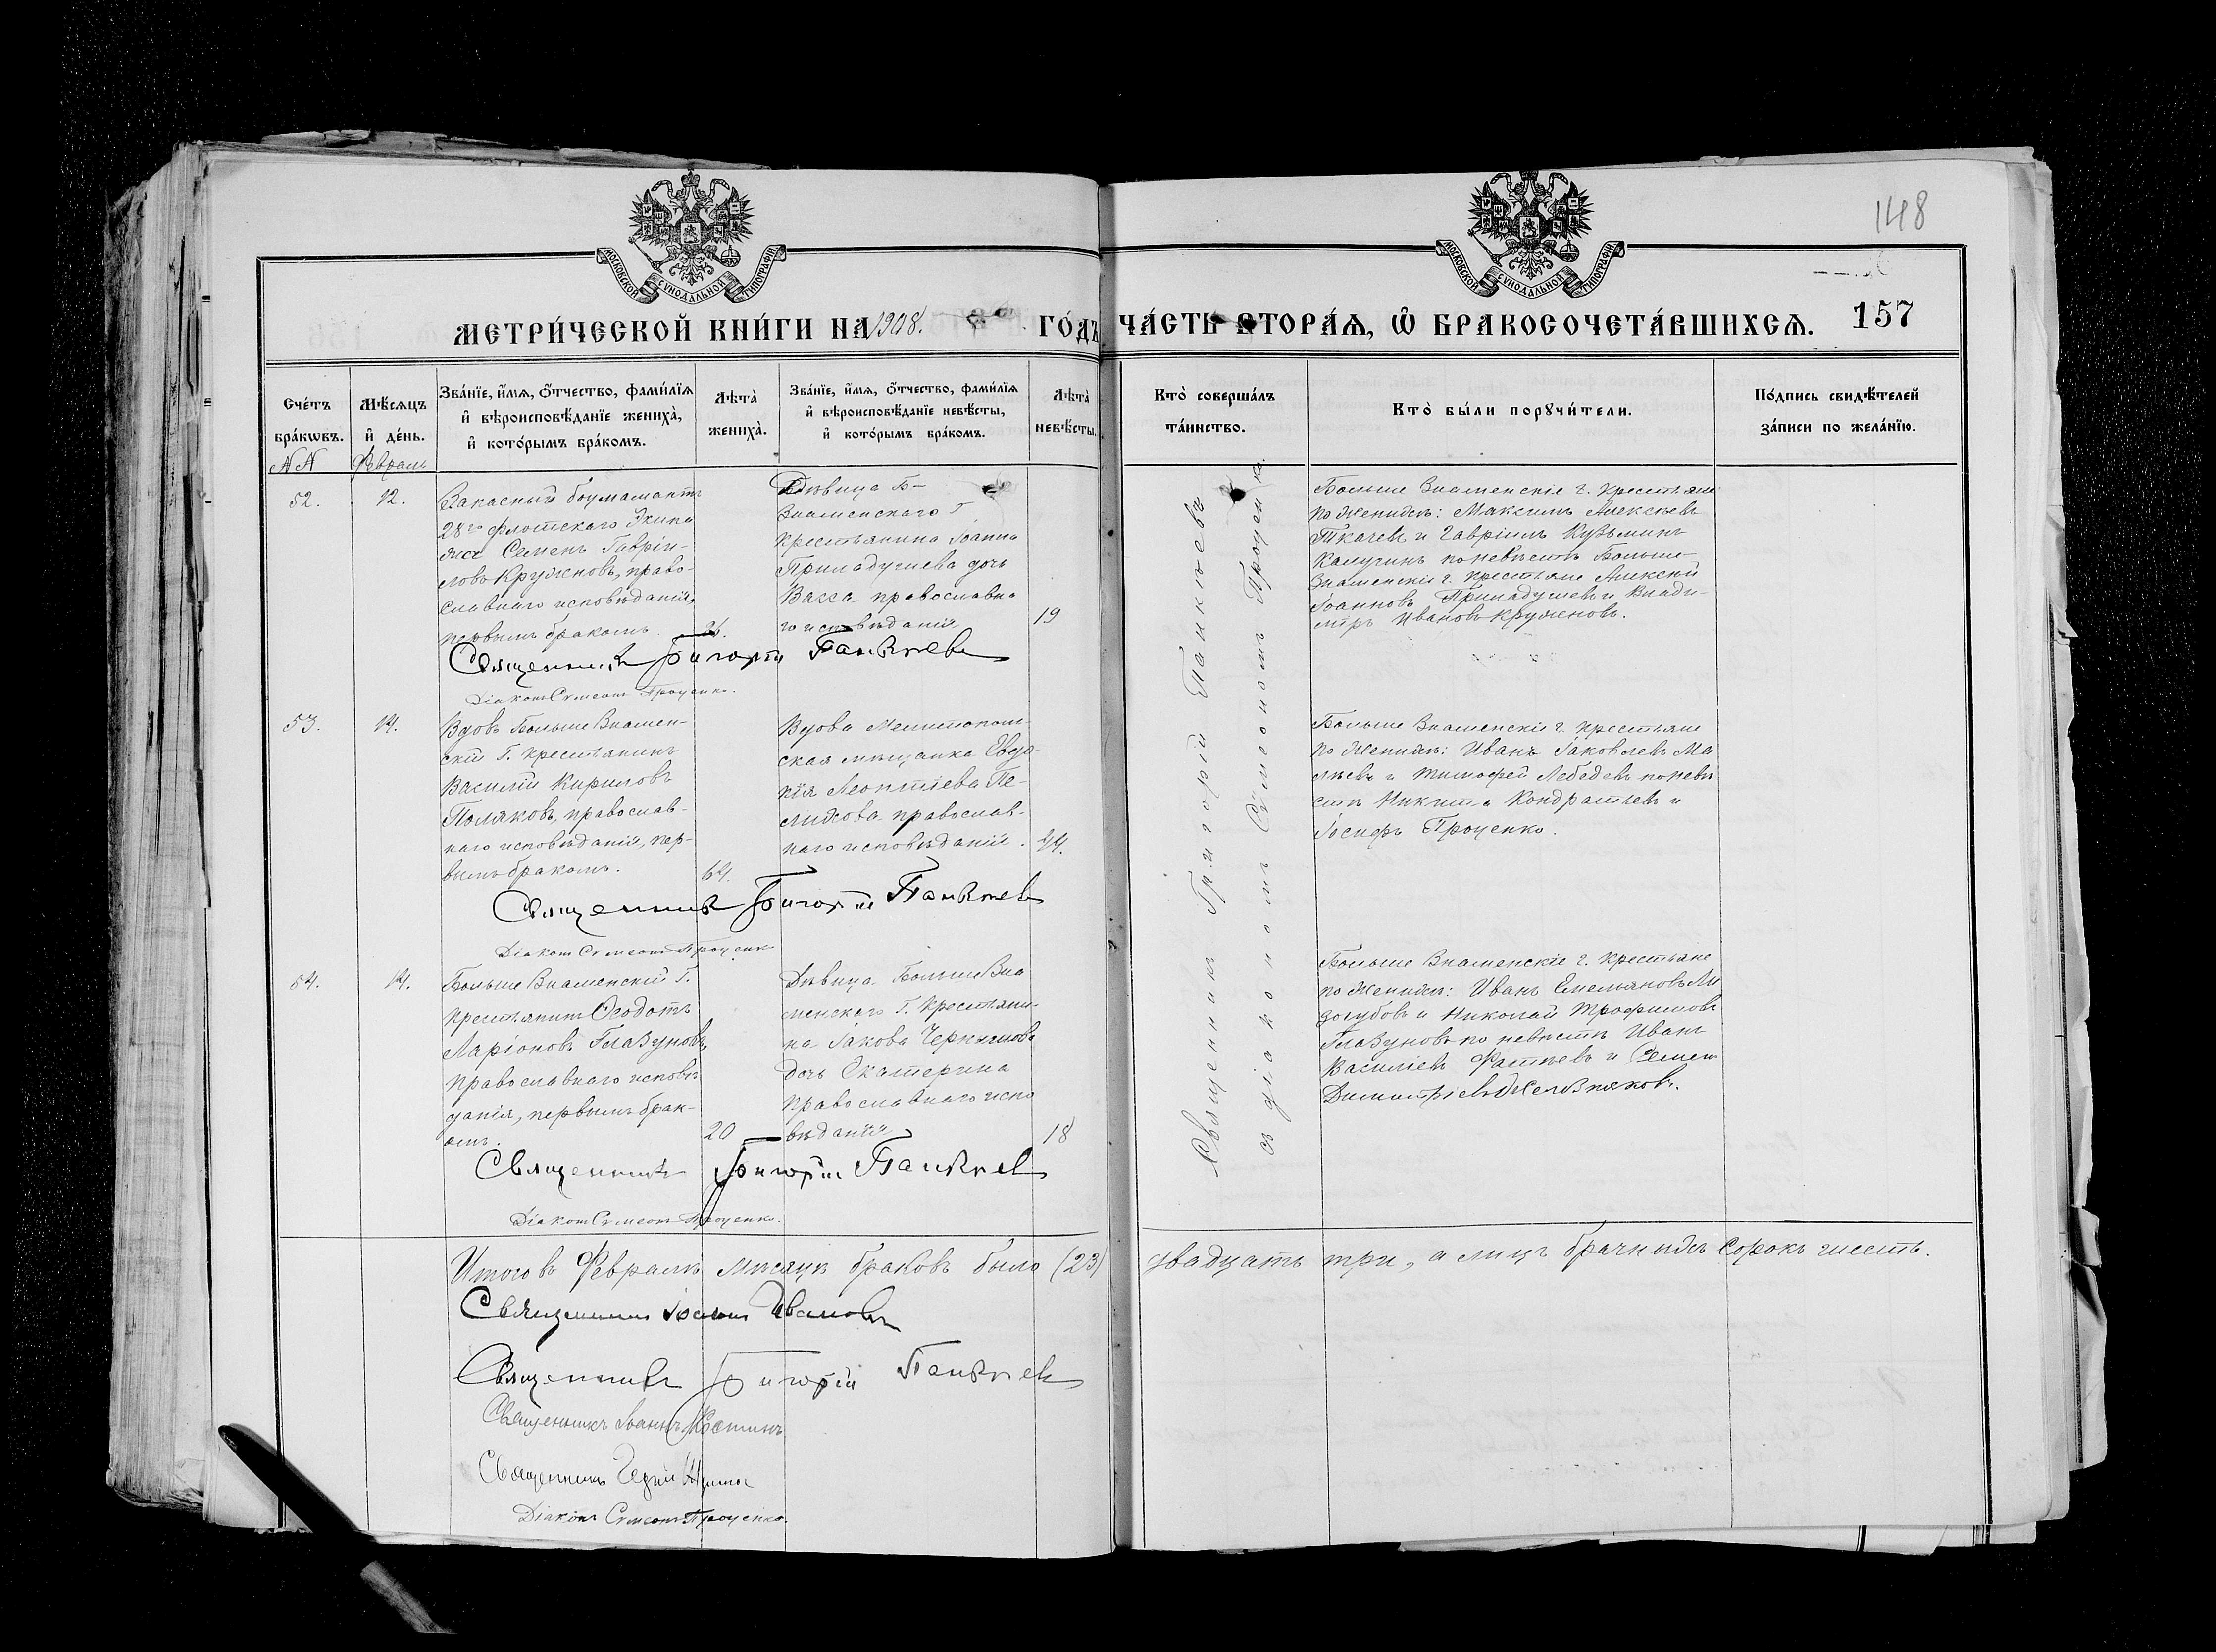 148
МОСКОВСКОЙ СУНОДАЛЬНОЙ ТИПОГРАФІИ
МОСКОВСКОЙ СУНОДАЛЬНОЙ ТИПОГРАФІИ
МЕТРИ́ЧЕСКОЙ КНИ́ГИ НА 1908. ГО́ДЪ
ЧА́СТЬ ВТОРА́Я, Ѡ҆ БРАКОСОЧЕТА́ВШИХСЯ. 157
Сче́тъ бра́кѡвъ.
Мѣ́сяцъ и҆ де́нь.
Зва́нїе, и҆́мя, ѻ҆́тчество, фами́лїя
и҆ вѣроисповѣ́данїе жениха̀,
и҆ кото́рымъ бра́комъ.
Лѣта̀ жениха̀.
Зва́нїе, и҆́мя, ѻ҆́тчество, фами́лїя
и҆ вѣроисповѣ́данїе невѣ́сты,
и҆ кото́рымъ бра́комъ.
Лѣта̀ невѣ́сты.
Кто̀ соверша́лъ
та́инство.
Кто̀ бы́ли порꙋчи́тели.
По́дпись свидѣ́телей
за́писи по жела́нїю.
NN
Февраль
52.
12.
Запасный боцманматъ
28го флотскаго Экипа
жа Семенъ Гавріи-
ловъ Круженовъ, право-
славнаго исповѣданія,
первымъ бракомъ.
26.
Дѣвица Б-
Знаменскаго Г
крестьянина Іоанна
Приладушева дочь
Васса православна
го исповѣданія
19
Больше Знаменскіе г. крестьяне
по женихѣ: Максимъ Алексѣевъ
Ткачевъ и Гавріилъ Кузьминъ
Калугинъ по невѣстѣ Больше
Знаменскіе г. крестьяне Алексѣй
Іоанновъ Приладушевъ и Влади-
міръ Ивановъ Круженовъ.
Священникъ Григорій Панкѣевъ
Діаконъ Сѵмеонъ Проценко.
53.
14.
Вдовъ Больше Знамен-
скій Г. крестьянинъ
Василій Кириловъ
Поляковъ, православ-
наго исповѣданія, пер-
вымъ бракомъ.
64.
Вдова Мелитополь-
ская мѣщанка Евдо-
кія Леонтіева Пе-
лихова православ-
наго исповѣданія.
44.
Больше Знаменскіе г. крестьяне
по женихѣ: Иванъ Іаковлевъ Ма
лѣевъ и Тимофей Лебедевъ по невѣ
стѣ Никита Кондратьевъ и
Іосифъ Проценко.
Священникъ Григорій Панкѣевъ
Діаконъ Сѵмеонъ Проценко
54.
14.
Больше Знаменскій Г.
крестьянинъ Ѳеодотъ
Ларіоновъ Глазуновъ,
православнаго исповѣ
данія, первымъ брак-
омъ.
20
Дѣвица Больше Зна
менскаго Г. крестьяни-
на Іакова Чернышова
дочь Екатерина
православнаго испо
вѣданія
18
Больше Знаменскіе г. крестьяне
по женихѣ: Иванъ Емельяновъ Ли
догубовъ и Николай Трофимовъ
Глазуновъ по невѣстѣ Иванъ
Василіевъ Фатѣевъ и Семенъ
Димитріевъ Желѣзняковъ.
Священникъ Григорій Панкѣевъ
Діаконъ Сѵмеонъ Проценко.
Священникъ Григорій Панкѣевъ
съ діакономъ Сѵмеономъ Проценко.
Итого въ Февралѣ мѣсяцѣ браковъ было (23) двадцать три, а лицъ брачныхъ сорокъ шесть.
Священникъ Іоаннъ Ивановъ
Священникъ Григорій Панкѣевъ
Священникъ Іоаннъ Костинъ
Священникъ
Діаконъ Сѵмеонъ Проценко.